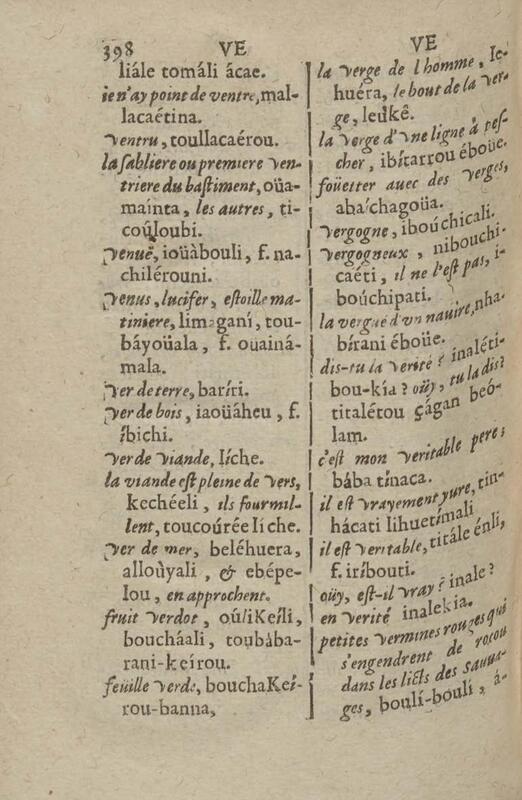 398 VE
liále tomáli ácae.
ie n'ay point de ventre, mal-
lacaétina.
ventru, toullacaérou.
la sabliere ou premiere ven-
triere du bastiment, oüa-
mainta, les autres, ti-
coúloubi.
venuë, ioüàbouli, f. na-
chilérouni.
venus, lucifer, estoille ma-
tiniere, limaganí, tou-
báyoüala, f. oüainá-
mala.
ver de terre, baríri.
ver de bois, iaoüáheu, f.
íbichi.
ver de viande, Iíche.
la viande est pleine de vers,
kechéeli, ils fourmil-
lent, toucoúrée Ií che.
ver de mer, beléhuera,
alloùyali, & ebépe-
lou, en approchent.
fruit verdot, oúliKeíli,
boucháali, toubába-
rani-keírou.
feüille verde, bouchaKeí-
rou-banna,
VE
la verge de l'homme, Ie-
huéra, le bout de la ver-
ge, leúkê.
la verge d'vne ligne à pes-
cher, ibítarrou éboüe.
foüetter auec des verges,
aba'chagoüa.
vergogne, iboúchicali.
vergogneux, nibouchi-
caéti, il ne l'est pas, i-
boúchipati.
la vergue d'vn nauire, nha-
bírani éboüe.
dis-tu la verité? inaléti-
bou-kía? oüy, tu la dis?
titalétou çágan beó-
lam.
c'est mon veritable pere;
bába tínaca.
il est vrayement yure, tin-
hácati lihuetímali
il est veritable, titále énli,
f. iríbouti.
oüy, est-il vray? inale?
en verité inalekia.
petites vermines rouges qui
s'engendrent de rocou
dans les licts des sauua-
ges, boulí-boulí, á-